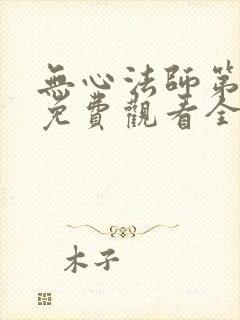 無心法師第
免費觀看全
木子